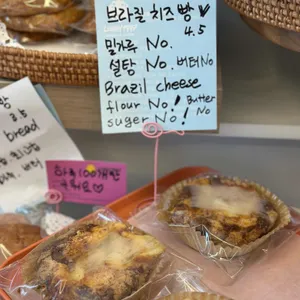 브라질 치즈빵♥
4.5
밀가루 No.
설탕 No. 버터No
Brazil cheese
flour No! Butter No
suger No!
bread
하루 100개만
구워요♡